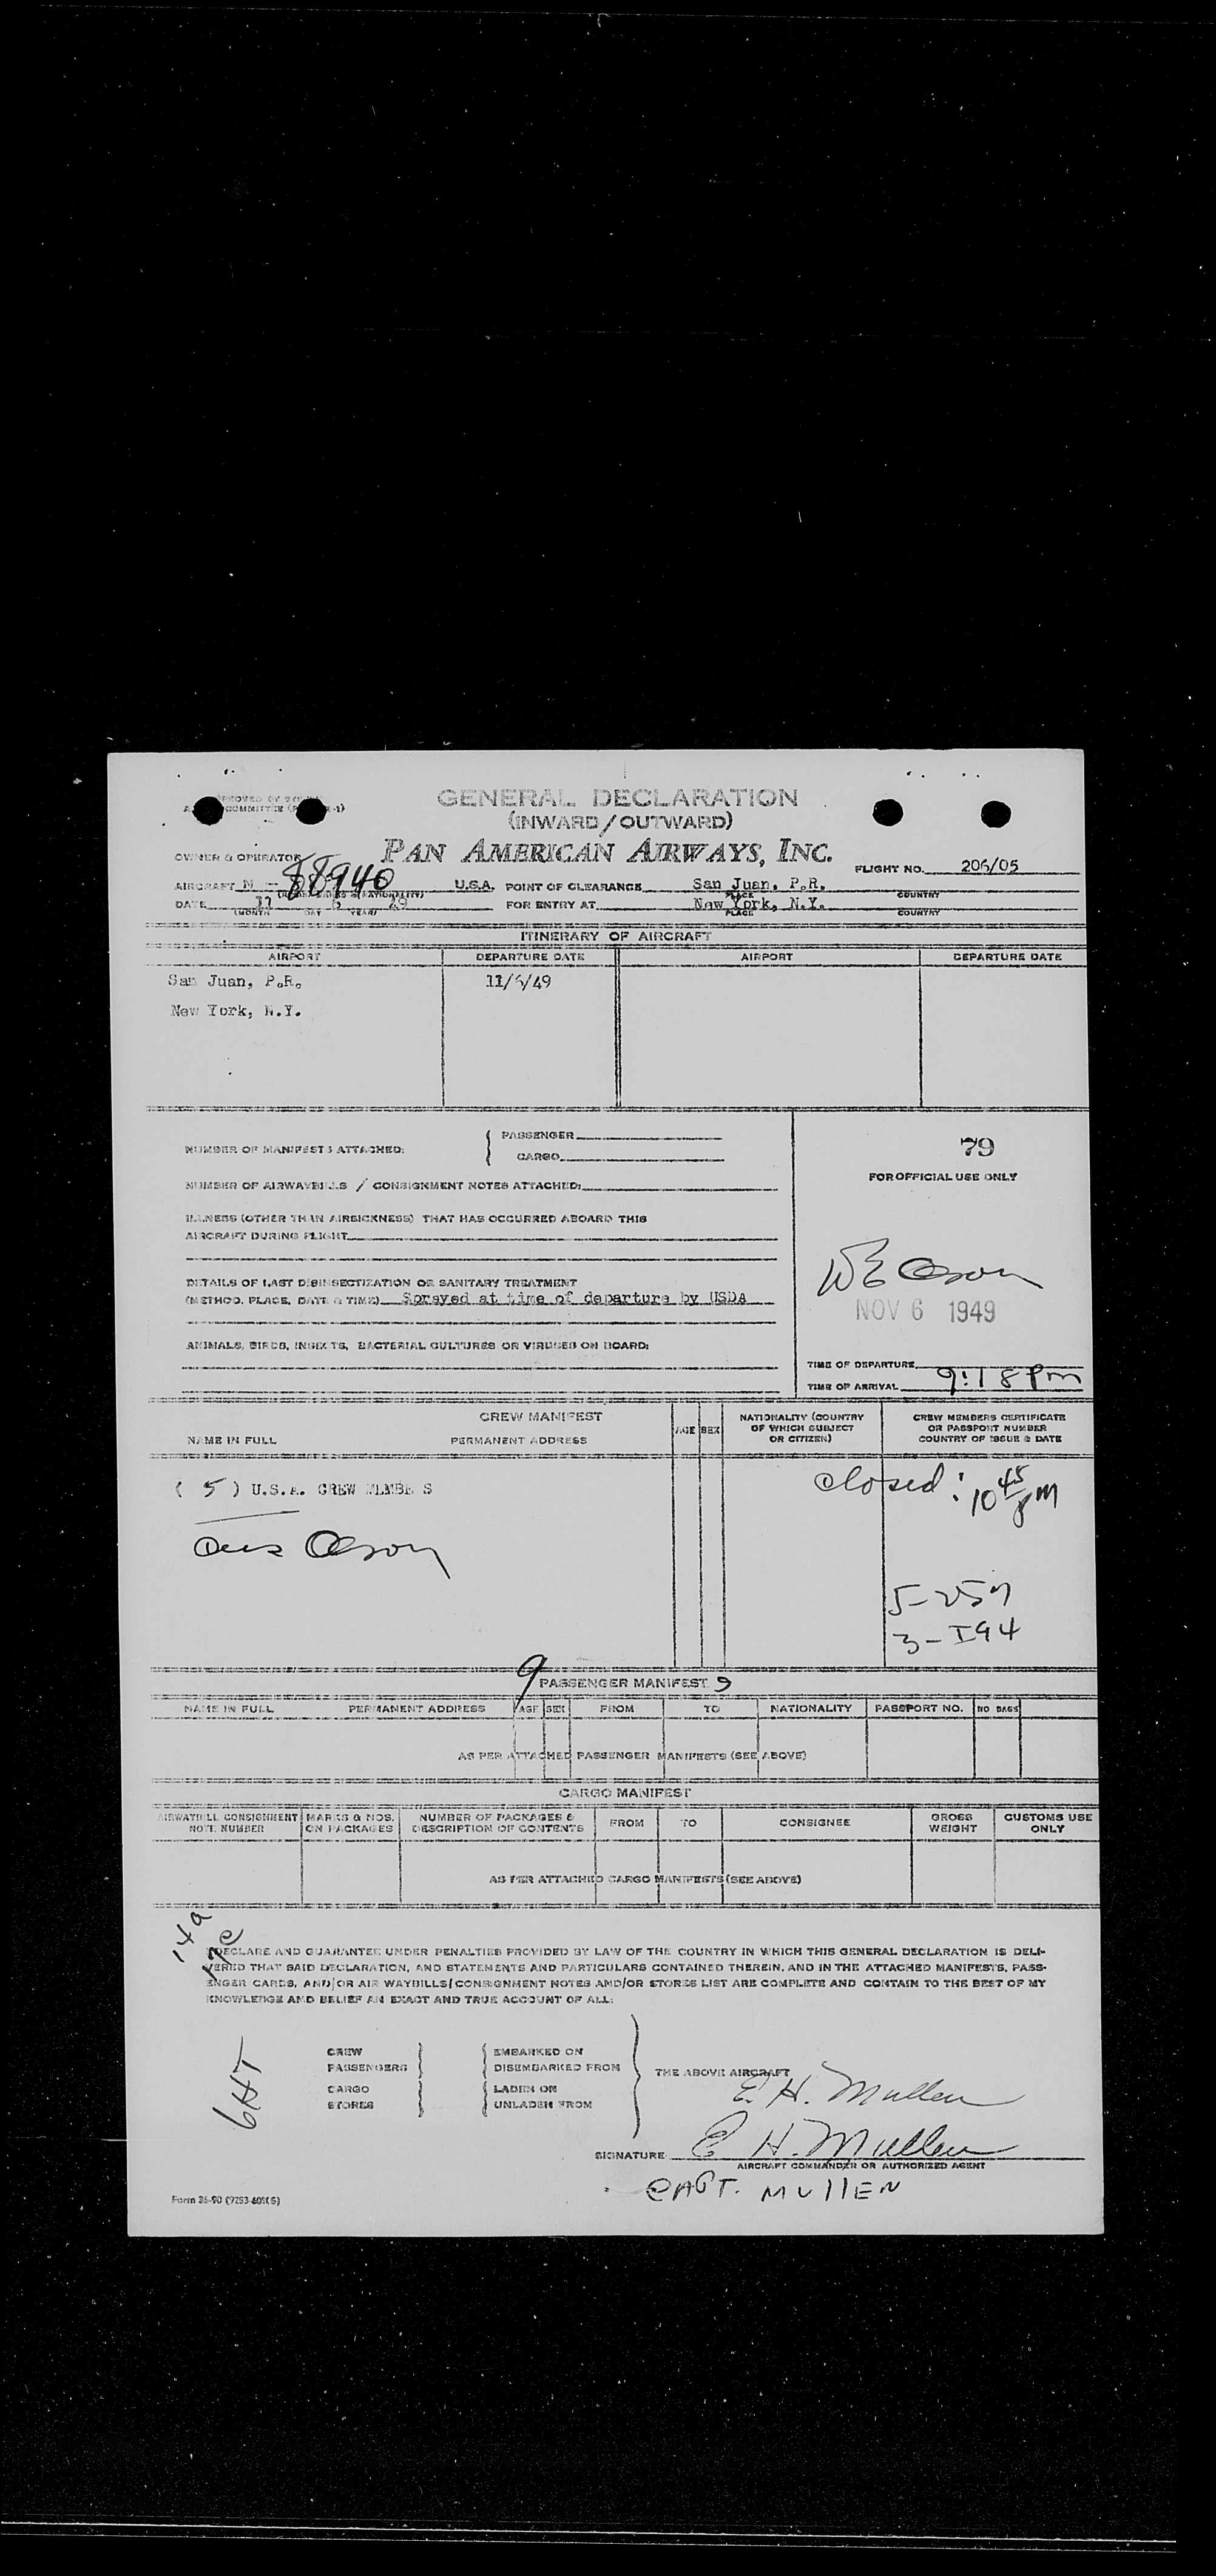 GENERAL DECLARATION
(INWARD/OUTWARD)
OWNER & OPERATOR PAN AMERICAN AIRWAYS, INC.
FLIGHT NO. 206/05
AIRCRAFT N - 88940 U.S.A. POINT OF CLEARANCE San Juan, P.R.
PLACE COUNTRY
DATE 11 6 FOR ENTRY AT New York, N.Y.
(MONTH DAY YEAR) PLACE COUNTRY
ITINERARY OF AIRCRAFT
AIRPORT DEPARTURE DATE AIRPORT DEPARTURE DATE
San Juan, P.R. 11/6/49
New York, N.Y.
NUMBER OF MANIFESTS ATTACHED: { PASSENGER
CARGO
79
FOR OFFICIAL USE ONLY
NUMBER OF AIRWAYBILLS / CONSIGNMENT NOTES ATTACHED:
ILLNESS (OTHER THAN AIRSICKNESS) THAT HAS OCCURRED ABOARD THIS
AIRCRAFT DURING FLIGHT
DETAILS OF LAST DISINSECTIZATION OR SANITARY TREATMENT
(METHOD, PLACE, DATE & TIME) Sprayed at time of departure by USDA
NOV 6 1949
ANIMALS, BIRDS, INSECTS, BACTERIAL CULTURES OR VIRUSES ON BOARD:
TIME OF DEPARTURE
TIME OF ARRIVAL 9:18 PM
CREW MANIFEST
NAME IN FULL PERMANENT ADDRESS AGE SEX NATIONALITY (COUNTRY OF WHICH SUBJECT OR CITIZEN) CREW MEMBERS CERTIFICATE OR PASSPORT NUMBER COUNTRY OF ISSUE & DATE
( 5 ) U.S.A. CREW MEMBE S
closed: 10 45 pm
5-257
3-I94
9 PASSENGER MANIFEST 9
NAME IN FULL PERMANENT ADDRESS AGE SEX FROM TO NATIONALITY PASSPORT NO. NO BAGS
AS PER ATTACHED PASSENGER MANIFESTS (SEE ABOVE)
CARGO MANIFEST
AIRWAYBILL CONSIGNMENT NOTE NUMBER MARKS & NOS. ON PACKAGES NUMBER OF PACKAGES & DESCRIPTION OF CONTENTS FROM TO CONSIGNEE GROSS WEIGHT CUSTOMS USE ONLY
AS PER ATTACHED CARGO MANIFESTS (SEE ABOVE)
I DECLARE AND GUARANTEE UNDER PENALTIES PROVIDED BY LAW OF THE COUNTRY IN WHICH THIS GENERAL DECLARATION IS DELI-
VERED THAT SAID DECLARATION, AND STATEMENTS AND PARTICULARS CONTAINED THEREIN, AND IN THE ATTACHED MANIFESTS, PASS-
ENGER CARDS, AND/OR AIR WAYBILLS/CONSIGNMENT NOTES AND/OR STORES LIST ARE COMPLETE AND CONTAIN TO THE BEST OF MY
KNOWLEDGE AND BELIEF AN EXACT AND TRUE ACCOUNT OF ALL:
CREW EMBARKED ON
PASSENGERS DISEMBARKED FROM
THE ABOVE AIRCRAFT
CARGO LADEN ON
STORES UNLADEN FROM
E. H. Mullen
SIGNATURE E H. Mullen
AIRCRAFT COMMANDER OR AUTHORIZED AGENT
CAPT. MULLEN